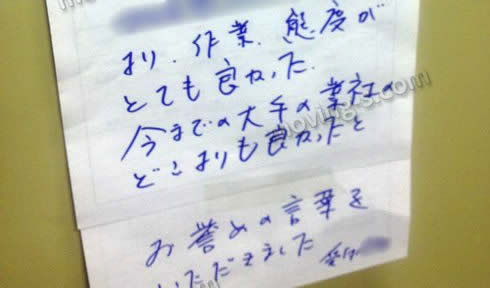 より、作業、態度が
とても良かった.
今までの大手の業社の
どこよりも良かったと
お誉めの言葉を
いただきました 受付